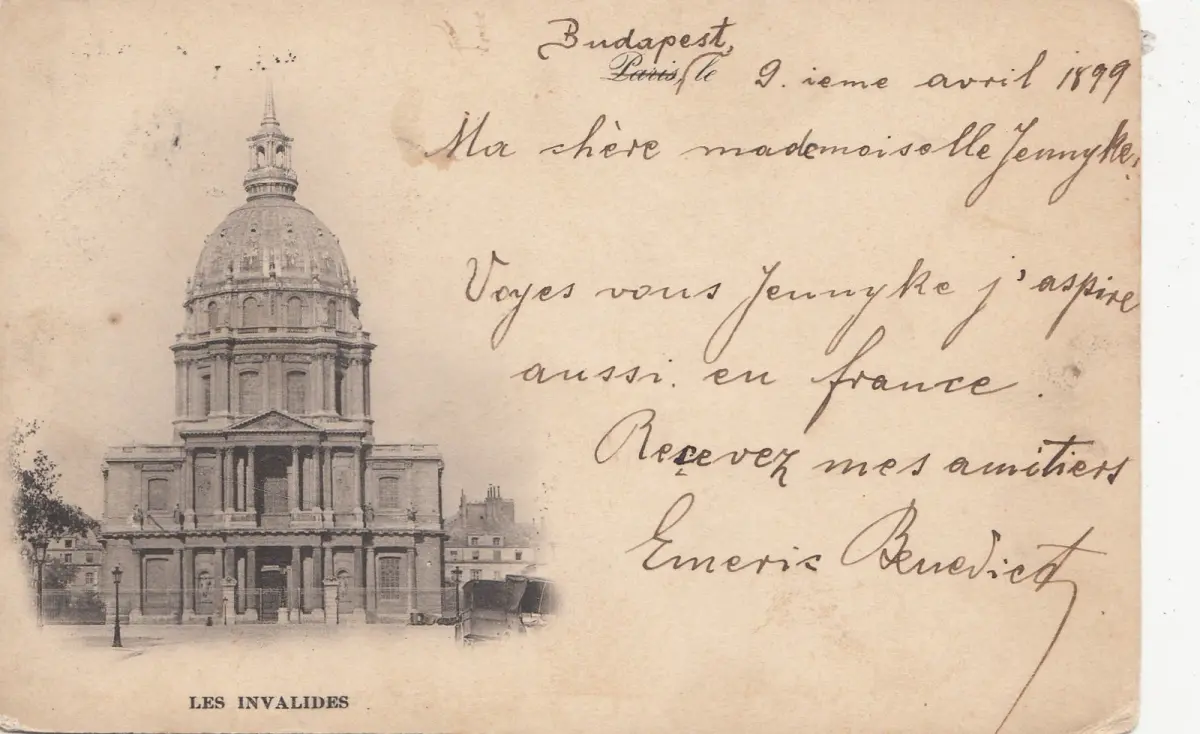 Budapest,
Paris, le 9. ieme avril 1899
Ma chère mademoiselle Jennyke,
Voyes vous Jennyke j'aspire
aussi. en france.
Reçevez mes amitiers
Emeric Benedict
LES INVALIDES